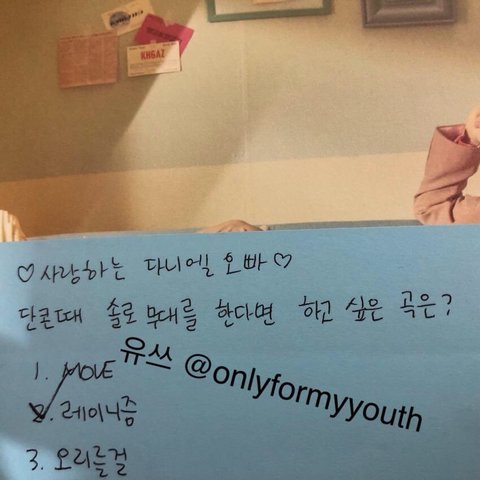 KHGAZ
♡사랑하는 다니엘 오빠♡
단콘때 솔로무대를 한다면 하고 싶은 곡은?
1. MOVE
유쓰 @onlyformyyouth
2. 레이니즘
3. 오리를걸